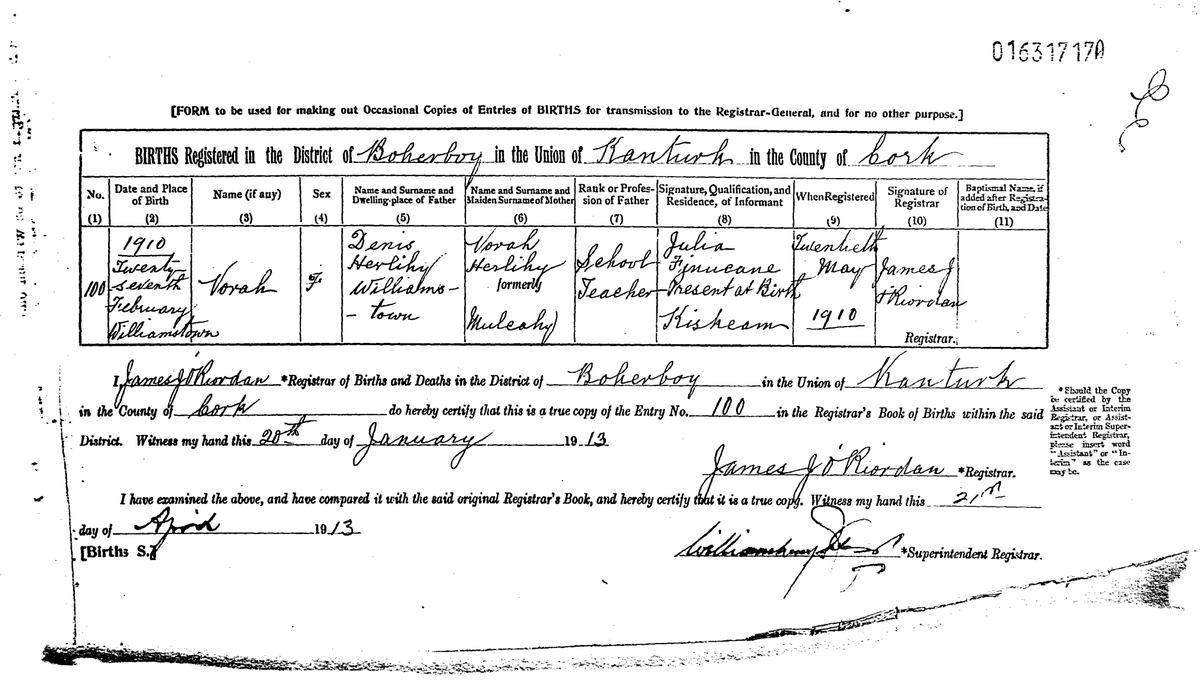 016317170
[FORM to be used for making out Occasional Copies of Entries of BIRTHS for transmission to the Registrar-General, and for no other purpose.]
BIRTHS Registered in the District of Boherboy in the Union of Kanturk in the County of Cork
No. (1) Date and Place of Birth (2) Name (if any) (3) Sex (4) Name and Surname and Dwelling-place of Father (5) Name and Surname and Maiden Surname of Mother (6) Rank or Profession of Father (7) Signature, Qualification, and Residence, of Informant (8) When Registered (9) Signature of Registrar (10) Baptismal Name, if added after Registration of Birth, and Date (11)
100 1910 Twenty seventh February Williamstown Norah F Denis Herlihy Williams-town Norah Herlihy formerly Mulcahy School Teacher Julia Finucane Present at Birth Kiskeam Twentieth May 1910 James J O'Riordan Registrar.
I, James J O'Riordan *Registrar of Births and Deaths in the District of Boherboy in the Union of Kanturk
in the County of Cork do hereby certify that this is a true copy of the Entry No. 100 in the Registrar's Book of Births within the said
District. Witness my hand this 20th day of January 1913
James J O'Riordan *Registrar.
I have examined the above, and have compared it with the said original Registrar's Book, and hereby certify that it is a true copy. Witness my hand this 21st
day of April 1913
[Births S.]
*Superintendent Registrar.
*Should the Copy
be certified by the
Assistant or Interim
Registrar, or Assist-
ant or Interim Super-
intendent Registrar,
please insert word
"Assistant" or "In-
terim" as the case
may be.